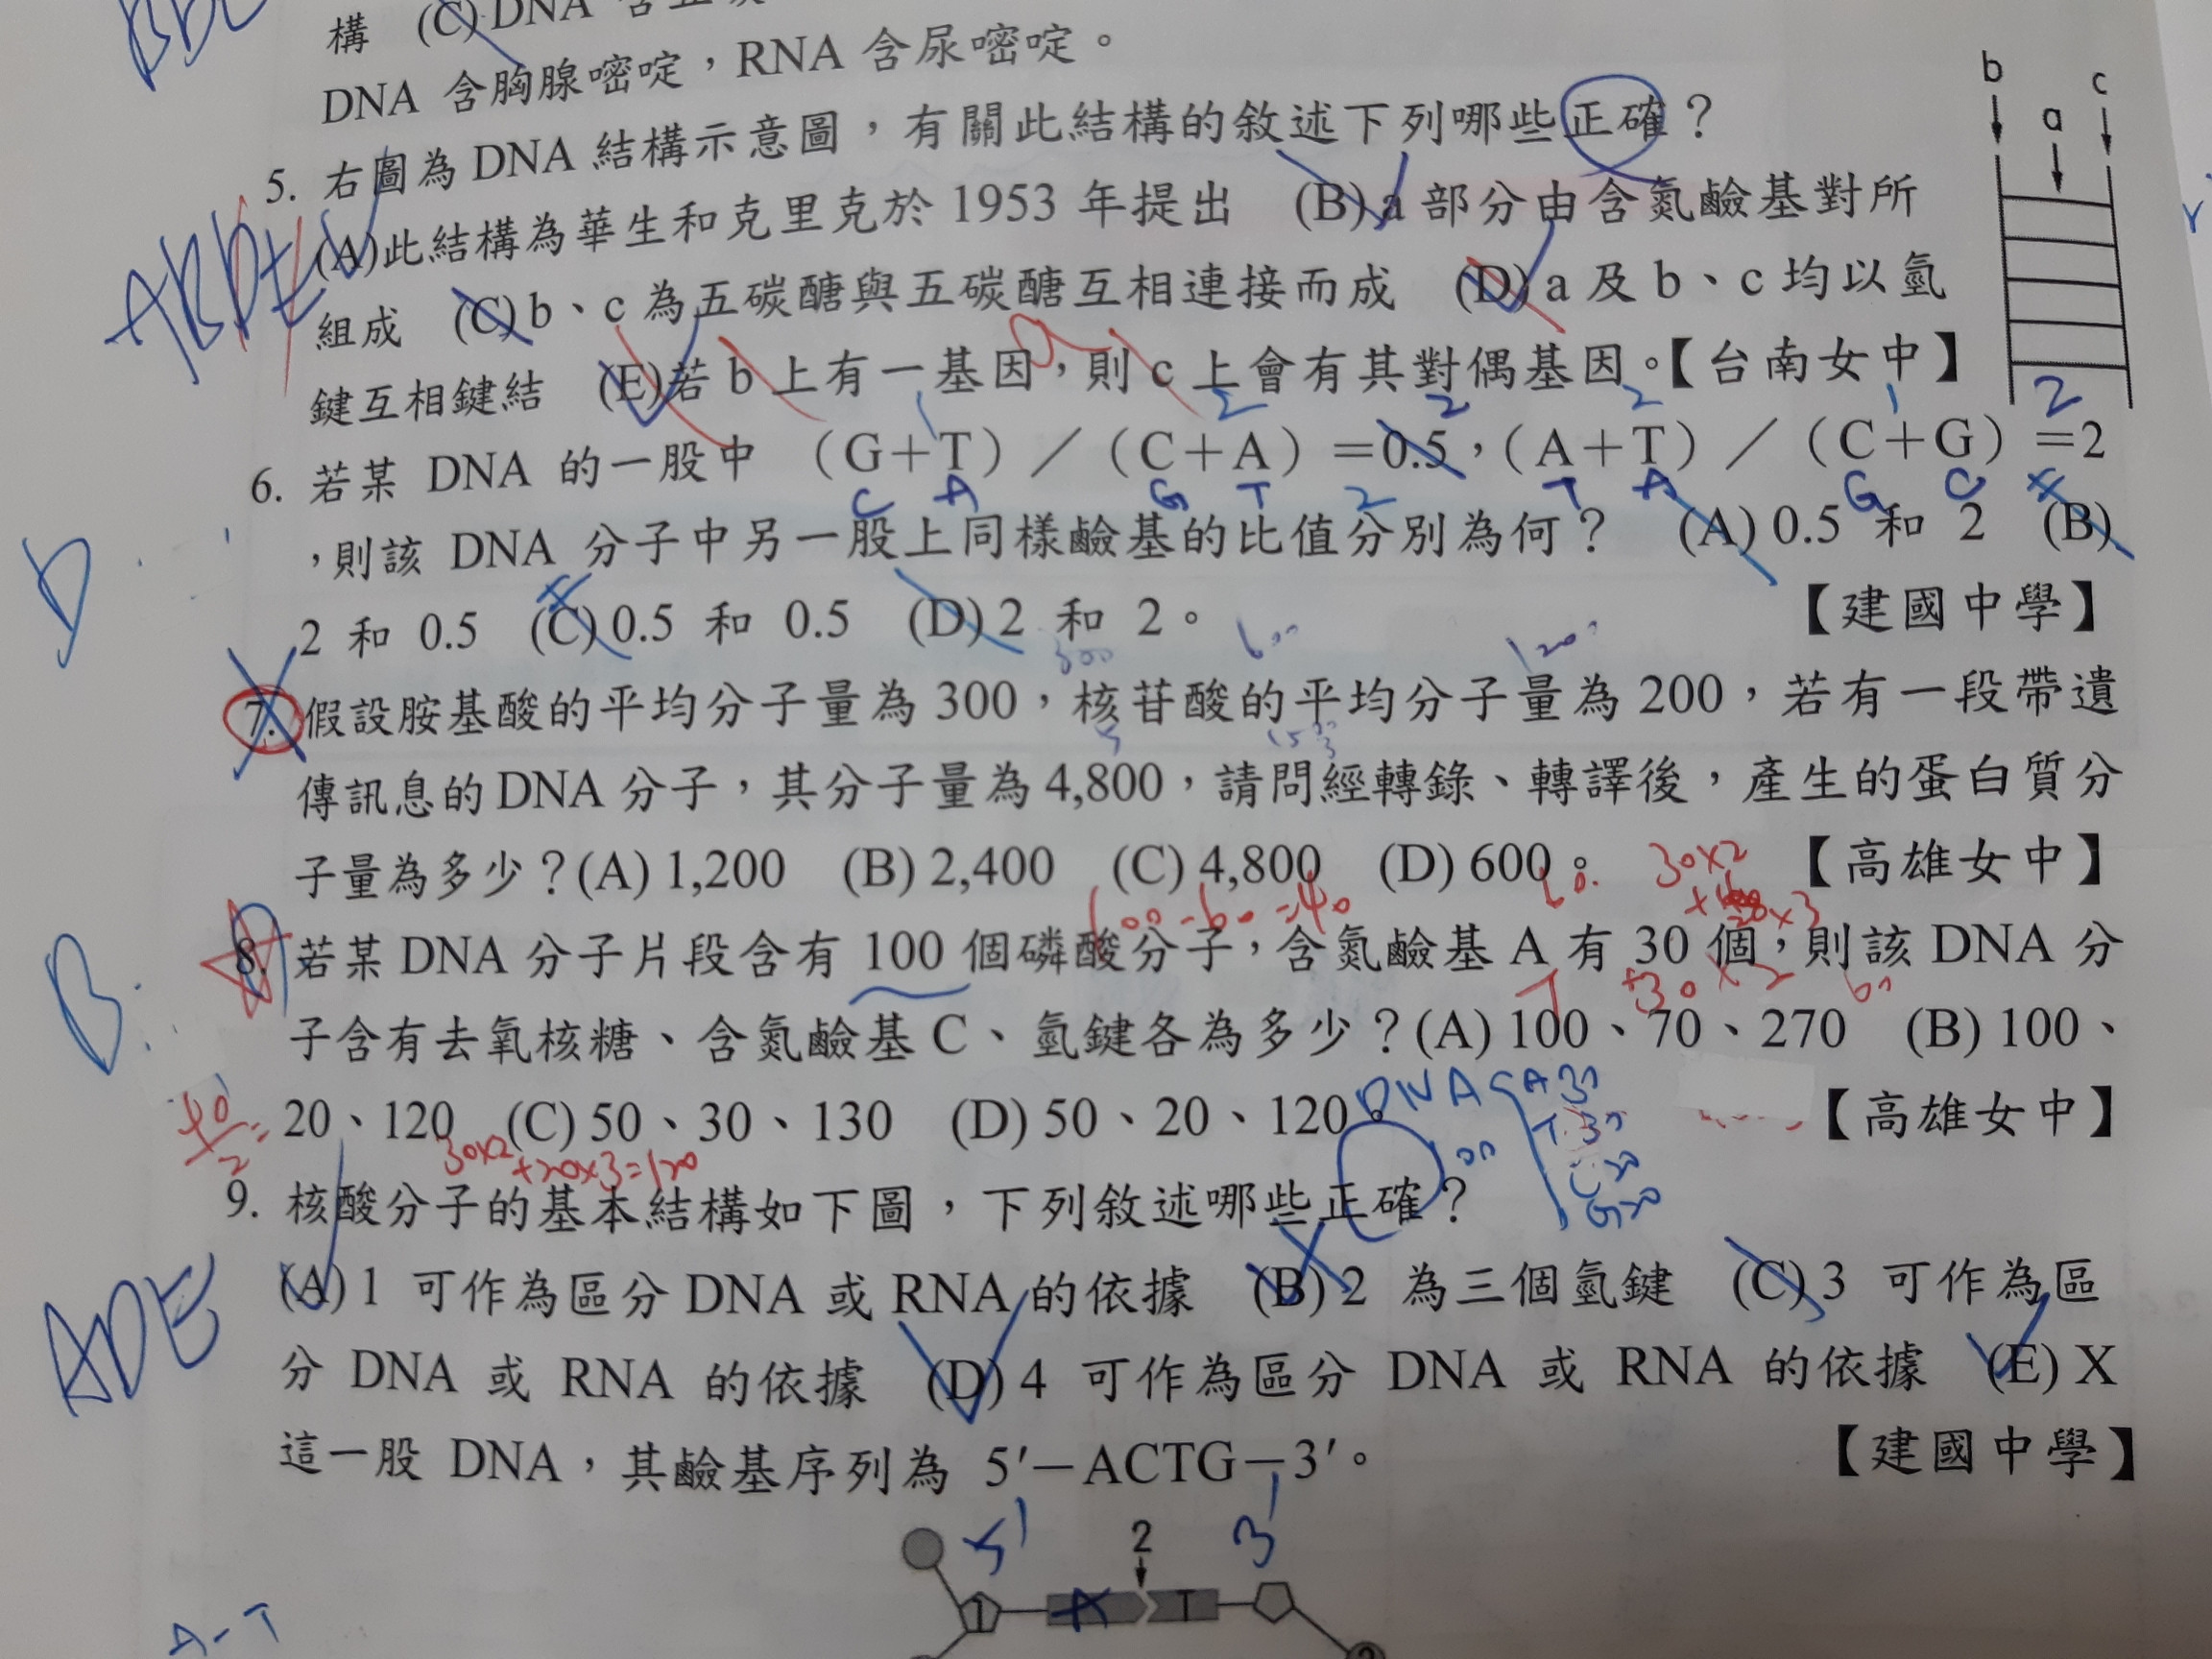 構 (C) DNA 含五
DNA 含胸腺嘧啶，RNA 含尿嘧啶。
b
c
a
5. 右圖為 DNA 結構示意圖，有關此結構的敘述下列哪些正確？
(A)此結構為華生和克里克於 1953 年提出 (B) a 部分由含氮鹼基對所
組成 (C) b、c 為五碳醣與五碳醣互相連接而成 (D) a 及 b、c 均以氫
鍵互相鍵結 (E)若 b 上有一基因，則 c 上會有其對偶基因。【台南女中】
ABDE
2 2 2 1 2
6. 若某 DNA 的一股中 （G＋T）／（C＋A）＝0.5，（A＋T）／（C＋G）＝2
C A G T 2 T A G C
，則該 DNA 分子中另一股上同樣鹼基的比值分別為何？ (A) 0.5 和 2 (B)
2 和 0.5 (C) 0.5 和 0.5 (D) 2 和 2。 【建國中學】
D
300 600
7. 假設胺基酸的平均分子量為 300，核苷酸的平均分子量為 200，若有一段帶遺
傳訊息的 DNA 分子，其分子量為 4,800，請問經轉錄、轉譯後，產生的蛋白質分
子量為多少？(A) 1,200 (B) 2,400 (C) 4,800 (D) 600。 【高雄女中】
30×2
B.
8. 若某 DNA 分子片段含有 100 個磷酸分子，含氮鹼基 A 有 30 個，則該 DNA 分
T 30
子含有去氧核糖、含氮鹼基 C、氫鍵各為多少？(A) 100、70、270 (B) 100、
DNA A 30
20、120 (C) 50、30、130 (D) 50、20、120。 【高雄女中】
T 30
40/2=
30×2+20×3=120
100
C 20
G 20
9. 核酸分子的基本結構如下圖，下列敘述哪些正確？
(A) 1 可作為區分 DNA 或 RNA 的依據 (B) 2 為三個氫鍵 (C) 3 可作為區
分 DNA 或 RNA 的依據 (D) 4 可作為區分 DNA 或 RNA 的依據 (E) X
這一股 DNA，其鹼基序列為 5′－ACTG－3′。 【建國中學】
ADE
5' 2 3'
1 A T
A-T